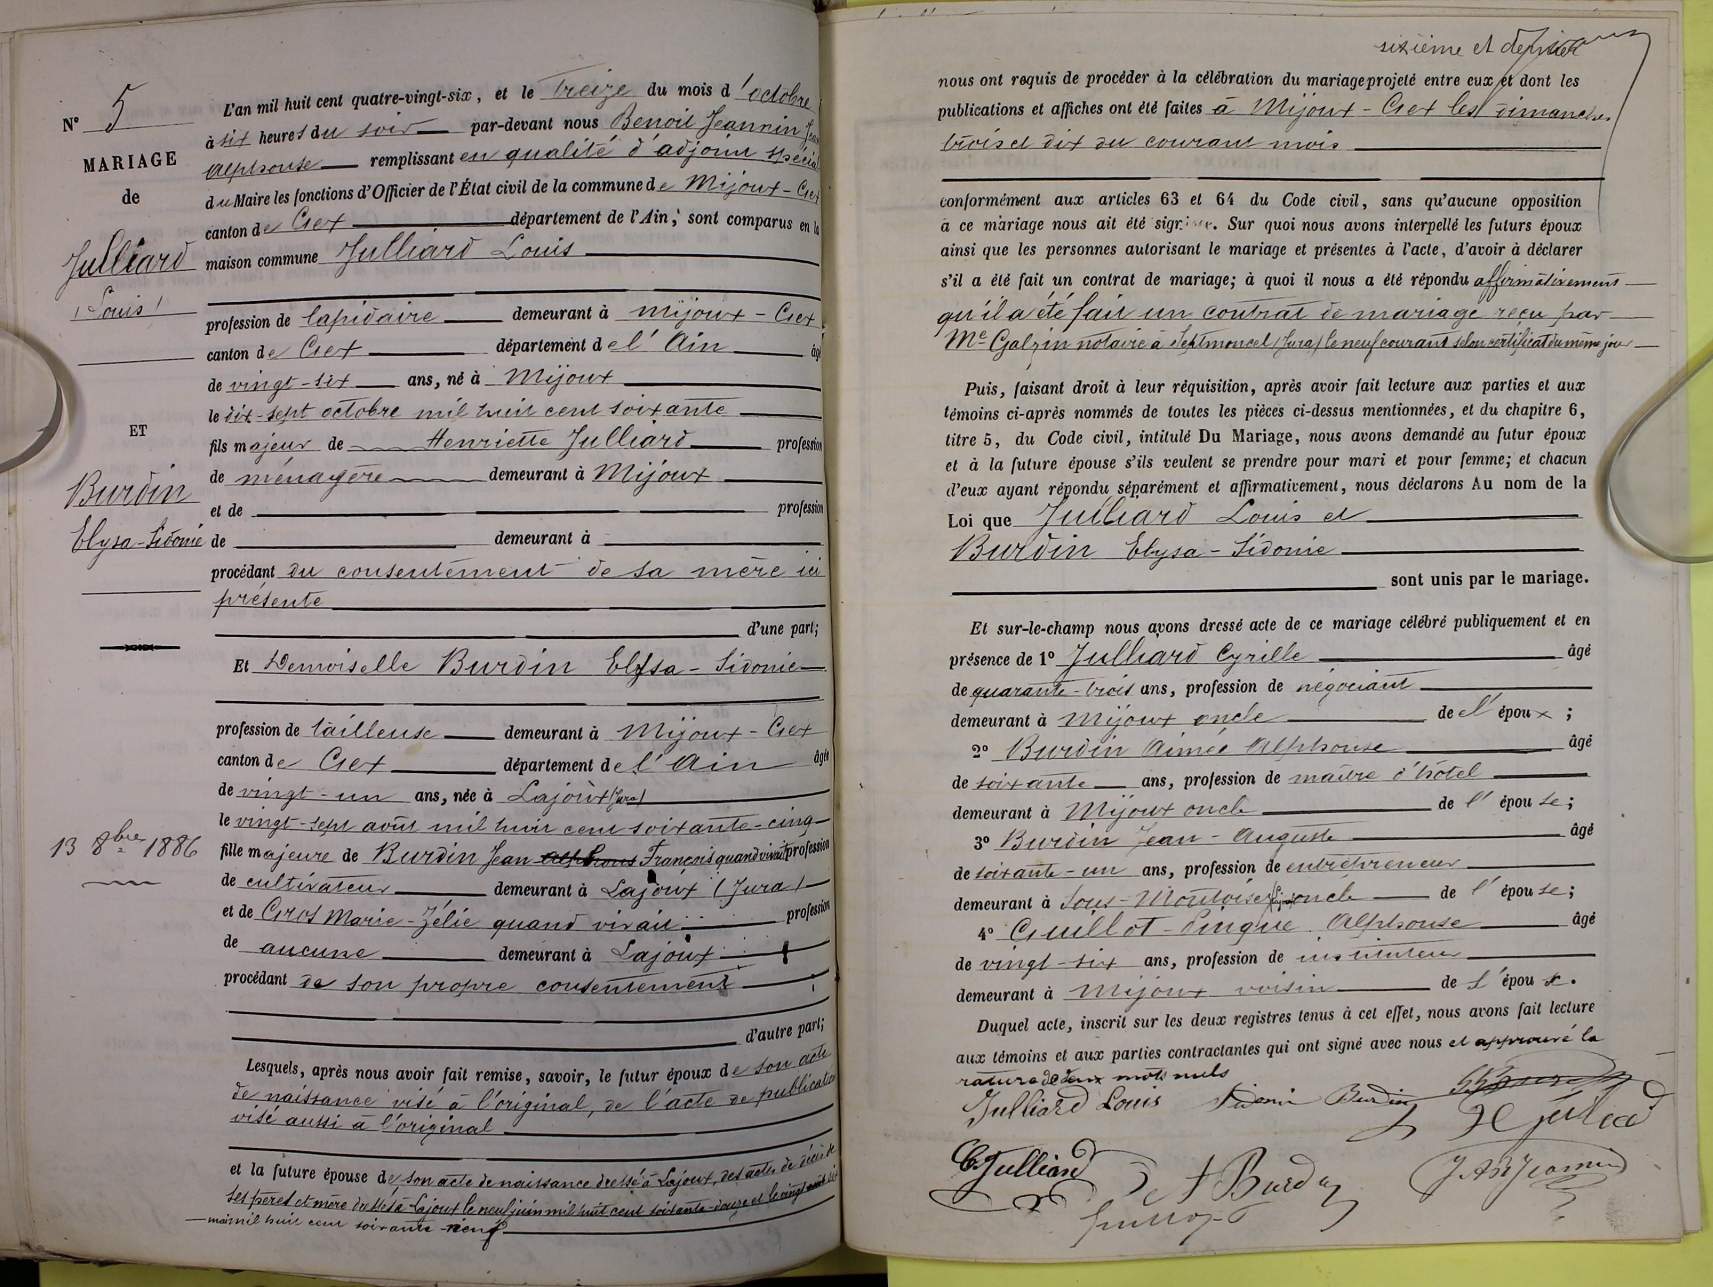 N° 5
MARIAGE
de
Julliard
(Louis)
ET
Burdin
Elysa-Sidonie
13 8bre 1886
L'an mil huit cent quatre-vingt-six, et le treize du mois d'octobre
à six heures du soir par-devant nous Benoit Jeannin Jean
Alphonse remplissant en qualité d'adjoint spécial
du Maire les fonctions d'Officier de l'État civil de la commune de Mijoux-Gex
canton de Gex département de l'Ain, sont comparus en la
maison commune Julliard Louis
profession de lapidaire demeurant à Mijoux-Gex
canton de Gex département de l'Ain âgé
de vingt-six ans, né à Mijoux
le dix-sept octobre mil huit cent soixante
fils majeur de Henriette Julliard profession
de ménagère demeurant à Mijoux
et de profession
de demeurant à
procédant du consentement de sa mère ici
présente
d'une part;
Et Demoiselle Burdin Elysa-Sidonie
profession de tailleuse demeurant à Mijoux-Gex
canton de Gex département de l'Ain âgée
de vingt-un ans, née à Lajoux (Jura)
le vingt-sept août mil huit cent soixante-cinq
fille majeure de Burdin Jean Alphons François quand vivait profession
de cultivateur demeurant à Lajoux (Jura)
et de Gros Marie-Zélie quand vivait profession
de aucune demeurant à Lajoux
procédant de son propre consentement
d'autre part;
Lesquels, après nous avoir fait remise, savoir, le futur époux de son acte
de naissance visé à l'original, de l'acte de publication
visé aussi à l'original
et la future épouse de son acte de naissance dressé à Lajoux, des actes de décès de
ses père et mère décédés à Lajoux le neuf juin mil huit cent soixante-douze et le vingt
mai mil huit cent soixante-neuf
sixième et dernier
nous ont requis de procéder à la célébration du mariage projeté entre eux et dont les
publications et affiches ont été faites à Mijoux-Gex les dimanches
trois et dix du courant mois
conformément aux articles 63 et 64 du Code civil, sans qu'aucune opposition
à ce mariage nous ait été signifiée. Sur quoi nous avons interpellé les futurs époux
ainsi que les personnes autorisant le mariage et présentes à l'acte, d'avoir à déclarer
s'il a été fait un contrat de mariage; à quoi il nous a été répondu affirmativement
qu'il a été fait un contrat de mariage reçu par
Me Galzin notaire à Septmoncel (Jura) le neuf courant selon certificat du même jour
Puis, faisant droit à leur réquisition, après avoir fait lecture aux parties et aux
témoins ci-après nommés de toutes les pièces ci-dessus mentionnées, et du chapitre 6,
titre 5, du Code civil, intitulé Du Mariage, nous avons demandé au futur époux
et à la future épouse s'ils veulent se prendre pour mari et pour femme; et chacun
d'eux ayant répondu séparément et affirmativement, nous déclarons Au nom de la
Loi que Julliard Louis et
Burdin Elysa-Sidonie
sont unis par le mariage.
Et sur-le-champ nous avons dressé acte de ce mariage célébré publiquement et en
présence de 1° Julliard Cyrille âgé
de quarante-trois ans, profession de négociant
demeurant à Mijoux oncle de l'époux;
2° Burdin Aimée Alphonse âgé
de soixante ans, profession de maître d'hôtel
demeurant à Mijoux oncle de l'épouse;
3° Burdin Jean-Auguste âgé
de soixante-un ans, profession de entrepreneur
demeurant à Sous-Montoise oncle de l'épouse;
4° Guillot-Pingue Alphonse âgé
de vingt-six ans, profession de instituteur
demeurant à Mijoux voisin de l'époux.
Duquel acte, inscrit sur les deux registres tenus à cet effet, nous avons fait lecture
aux témoins et aux parties contractantes qui ont signé avec nous et approuvé la
rature de deux mots nuls
Julliard Louis Sidonie Burdin
H Juliad
C. Julliard A Burdin J. Alph Jeannin
Guillot